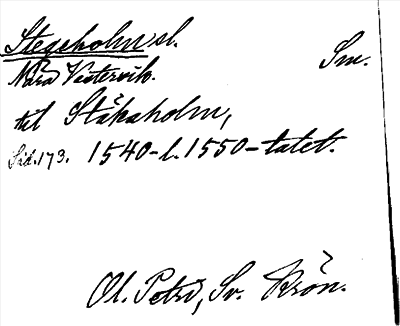 Stegeholm sl. Sm.
Nära Västervik.
till Stäkaholm,
Sid. 173. 1540-l. 1550-talet.
Ol. Petri, Sv. Krön.